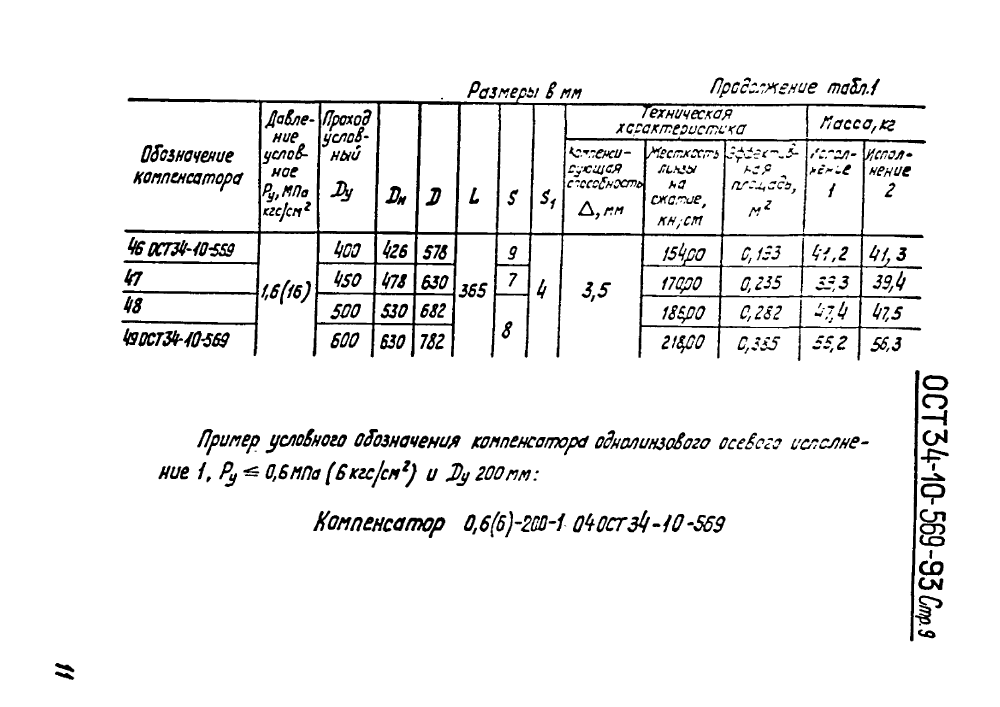 Размеры в мм
Продолжение табл.1
Обозначение компенсатора
Давление условное Ру, МПа кгс/см²
Проход условный Ду
Дн
D
L
S
S1
Техническая характеристика
Компенсирующая способность Δ, мм
Жесткость линзы на сжатие, кн/см
Эффективная площадь, м²
Масса, кг
Исполнение 1
Исполнение 2
46 ОСТ34-10-569 1,6(16) 400 426 578 365 9 4 3,5 154,00 0,193 41,2 41,3
47 450 478 630 7 170,00 0,235 39,3 39,4
48 500 530 682 8 186,00 0,282 47,4 47,5
49 ОСТ34-10-569 600 630 782 218,00 0,385 56,3
Пример условного обозначения компенсатора однолинзового осевого исполне-
ние 1, Ру ≤ 0,6 мпа (6 кгс/см²) и Ду 200 мм:
Компенсатор 0,6(6)-200-1 04 ОСТ 34-10-569
ОСТ 34-10-569-93 Стр.9
11